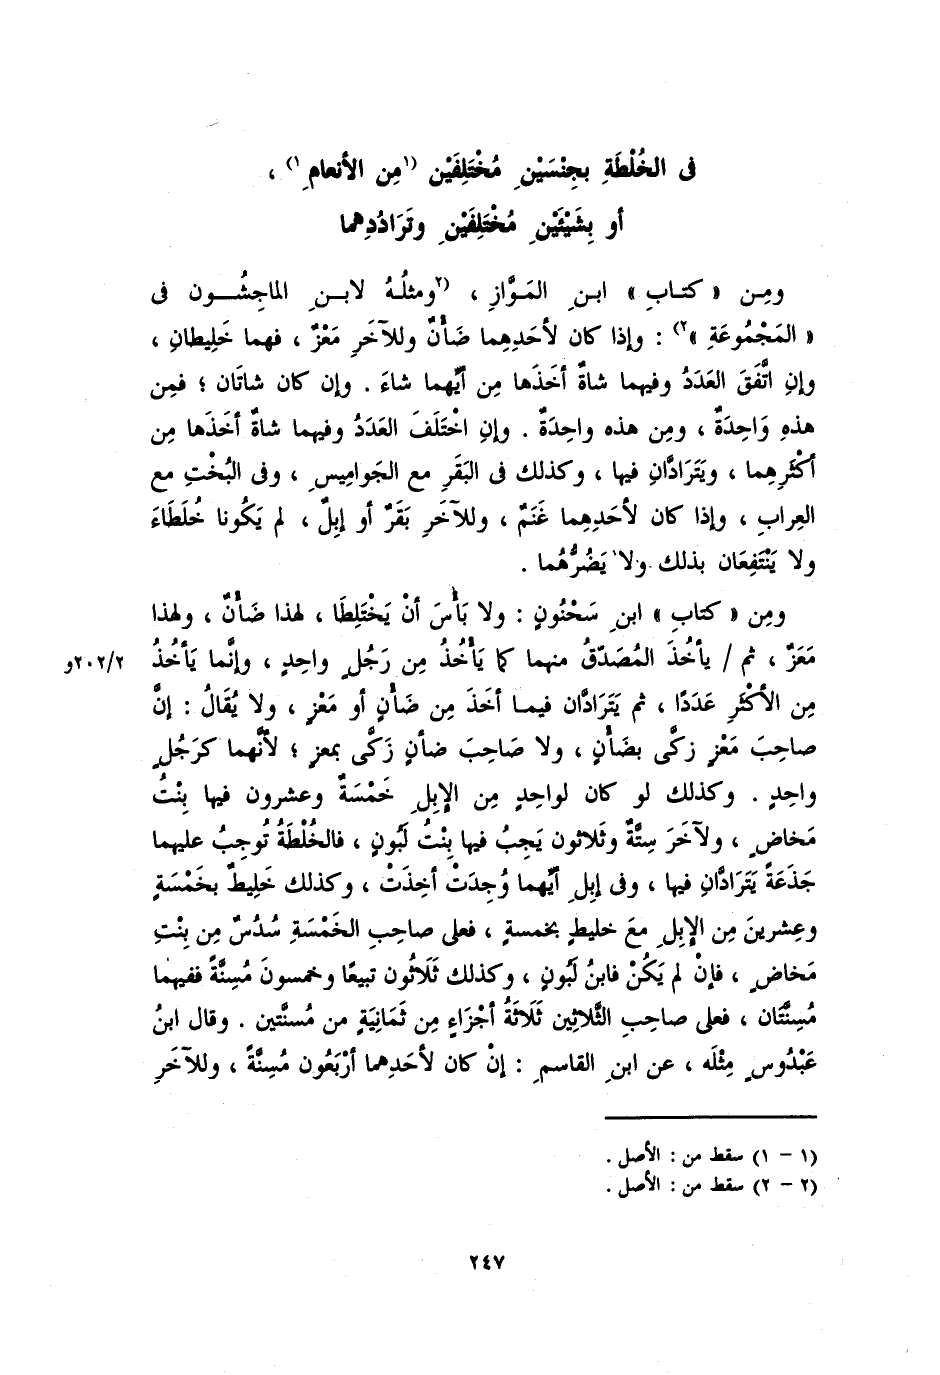 فى الخُلْطَةِ بجِنْسَيْنِ مُخْتَلِفَيْن (١مِن الأنعامِ١) ،
أو بِشَيْئَيْنِ مُخْتَلِفَيْنِ وتَرَادُدِهما
ومِن « كتابِ » ابنِ المَوَّازِ ، (٢ومثلُهُ لابنِ الماجِشُون فى
« المَجْمُوعَةِ »٢) : وإذا كان لأحَدِهِما ضَأْنٌ وللآخَرِ مَعْزٌ ، فهما خَلِيطانِ ،
وإنِ اتَّفَقَ العَدَدُ وفيهما شاةٌ أخَذَها مِن أيِّهما شاءَ . وإن كان شاتَان ؛ فمِن
هذهِ وَاحِدَةٌ ، ومِن هذه واحِدةٌ . وإنِ اخْتَلَفَ العَدَدُ وفيهما شاةٌ أخَذَها مِن
أكْثَرِهِما ، ويَتَرَادَّانِ فيها ، وكذلك فى البَقَرِ مع الجَوامِيسِ ، وفى البُخْتِ مع
العِرابِ ، وإذا كان لأحَدِهِما غَنَمٌ ، وللآخَرِ بَقَرٌ أو إبِلٌ ، لم يَكُونا خُلَطَاءَ
ولا يَنْتَفِعَان بذلك ولا يَضُرُّهُما .
ومِن « كتابِ » ابنِ سَحْنُونٍ : ولا بَأْسَ أنْ يَخْتَلِطَا ، لهذا ضَأْنٌ ، ولهذا
مَعَزٌ ، ثم / يأخُذَ المُصَدّقُ منهما كما يَأْخُذُ مِن رَجُلٍ واحِدٍ ، وإنَّما يَأخُذُ
٢٠٢/٢و
مِن الأكْثَرِ عَدَدًا ، ثم يَتَرَادَّان فيما أخَذَ مِن ضَأْنٍ أو مَعْزٍ ، ولا يُقَالُ : إنَّ
صاحِبَ مَعْزٍ زكَّى بضَأْنٍ ، ولا صَاحِبَ ضأنٍ زَكَّى بمعزٍ ؛ لأنَّهما كرَجُلٍ
واحِدٍ . وكذلك لو كان لواحِدٍ مِن الإبِلِ خَمْسَةٌ وعشرون فيها بِنْتُ
مَخاضٍ ، ولآخَرَ سِتَّةٌ وثَلاثون يَجِبُ فيها بِنْتُ لَبُونٍ ، فالخُلْطَةُ تُوجِبُ عليهما
جَذَعَةً يَتَرَادَّانِ فيها ، وفى إبِلِ أيِّهما وُجِدَتْ أخِذَتْ ، وكذلك خَلِيطٌ بخَمْسَةٍ
وعِشرينَ مِن الإبِلِ مَعَ خليطٍ بخمسةٍ ، فعلى صاحِبِ الخَمْسَةِ سُدُسٌ مِن بِنْتِ
مَخاضٍ ، فإنْ لم يَكُنْ فابنُ لَبُونٍ ، وكذلك ثَلَاثُون تبيعًا وخمسونَ مُسِنَّةً ففيهما
مُسِنَّتَان ، فعلى صاحبِ الثَّلاثِين ثَلَاثَةُ أجْزَاءٍ مِن ثَمَانِيَةٍ من مُسنَّتين . وقال ابنُ
عَبْدُوسٍ مِثْلَه ، عن ابنِ القاسمِ : إنْ كان لأحَدِهما أرْبَعُون مُسِنَّةً ، وللآخَرِ
(١ - ١) سقط من : الأصل .
(٢ - ٢) سقط من : الأصل .
٢٤٧